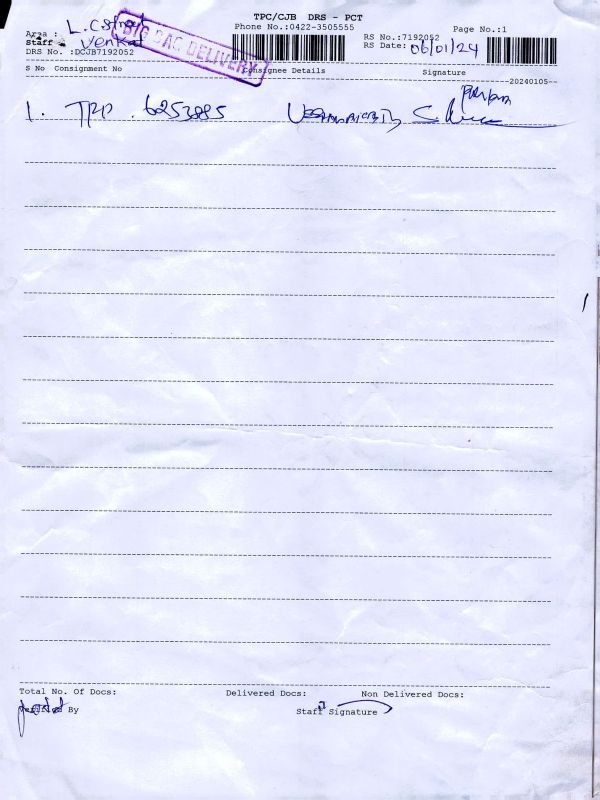 TPC/CJB DRS - PCT
Phone No.:0422-3505555
Page No.:1
Area : L.C Street
Staff : Venkat
BIG BAG DELIVERY
RS No.:7192052
RS Date: 06/01/24
DRS No. :DCJB7192052
S No Consignment No Consignee Details Signature
--20240105--
1. 6253885
Total No. Of Docs: Delivered Docs: Non Delivered Docs:
By Staff Signature